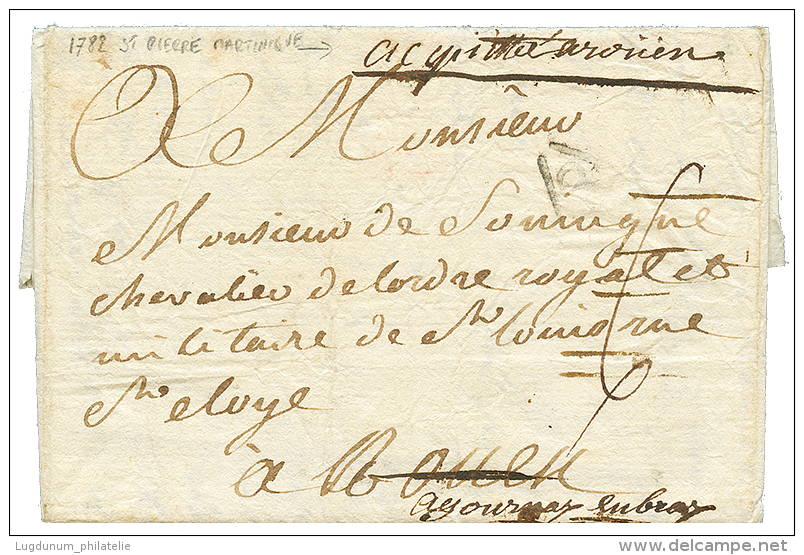 1782 St PIERRE MARTINIQUE →
acquitté a rouen
A Monsieur
Monsieur de
chevalier de lordre royal et
militaire de St louis rue
St eloye
à Rouen
a gournay enbray
Lugdunum_philatelie
www.delcampe.net